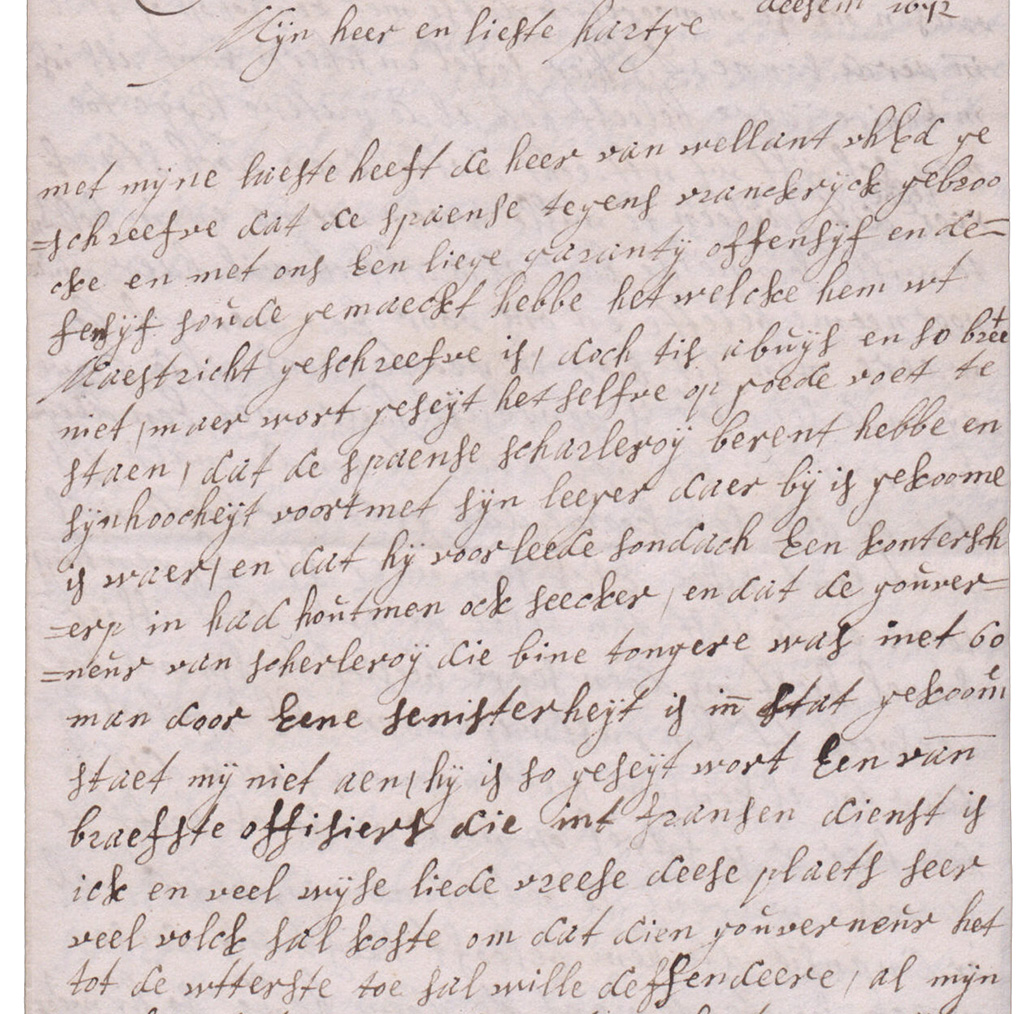 deesem 1672
Mijn heer en liefste hartge
met mijne laeste heeft de heer van wellant uhEd ge
=schreefve dat de spaense tegens vranckrijck gebroo
cke en met ons Een liege garantij offensijf en de=
fensijf soude gemaeckt hebbe het welcke hem wt
Maestricht geschreefve is, doch tis abuijs en so breet
niet, maer wort geseijt het selfve op goede voet te
staen, dat de spaense scharleroij berent hebbe en
sijn hoocheijt voort met sijn leeger daer bij is gekoome
is waer, en dat hij voorleede sondach Een kontersch
=erp in had hout men ock seecker, en dat de gouver=
=neur van scherleroij die bine tongere was met 60
man door Eene senisterheijt is in stat gekoom
staet mij niet aen, hij is so geseijt wort Een van
braefste offisiers die int fransen dienst is
ick en veel wijse liede vreese deese plaets seer
veel volck sal koste om dat dien gouverneur het
tot de wtterste toe sal wille deffendeere, al mijn